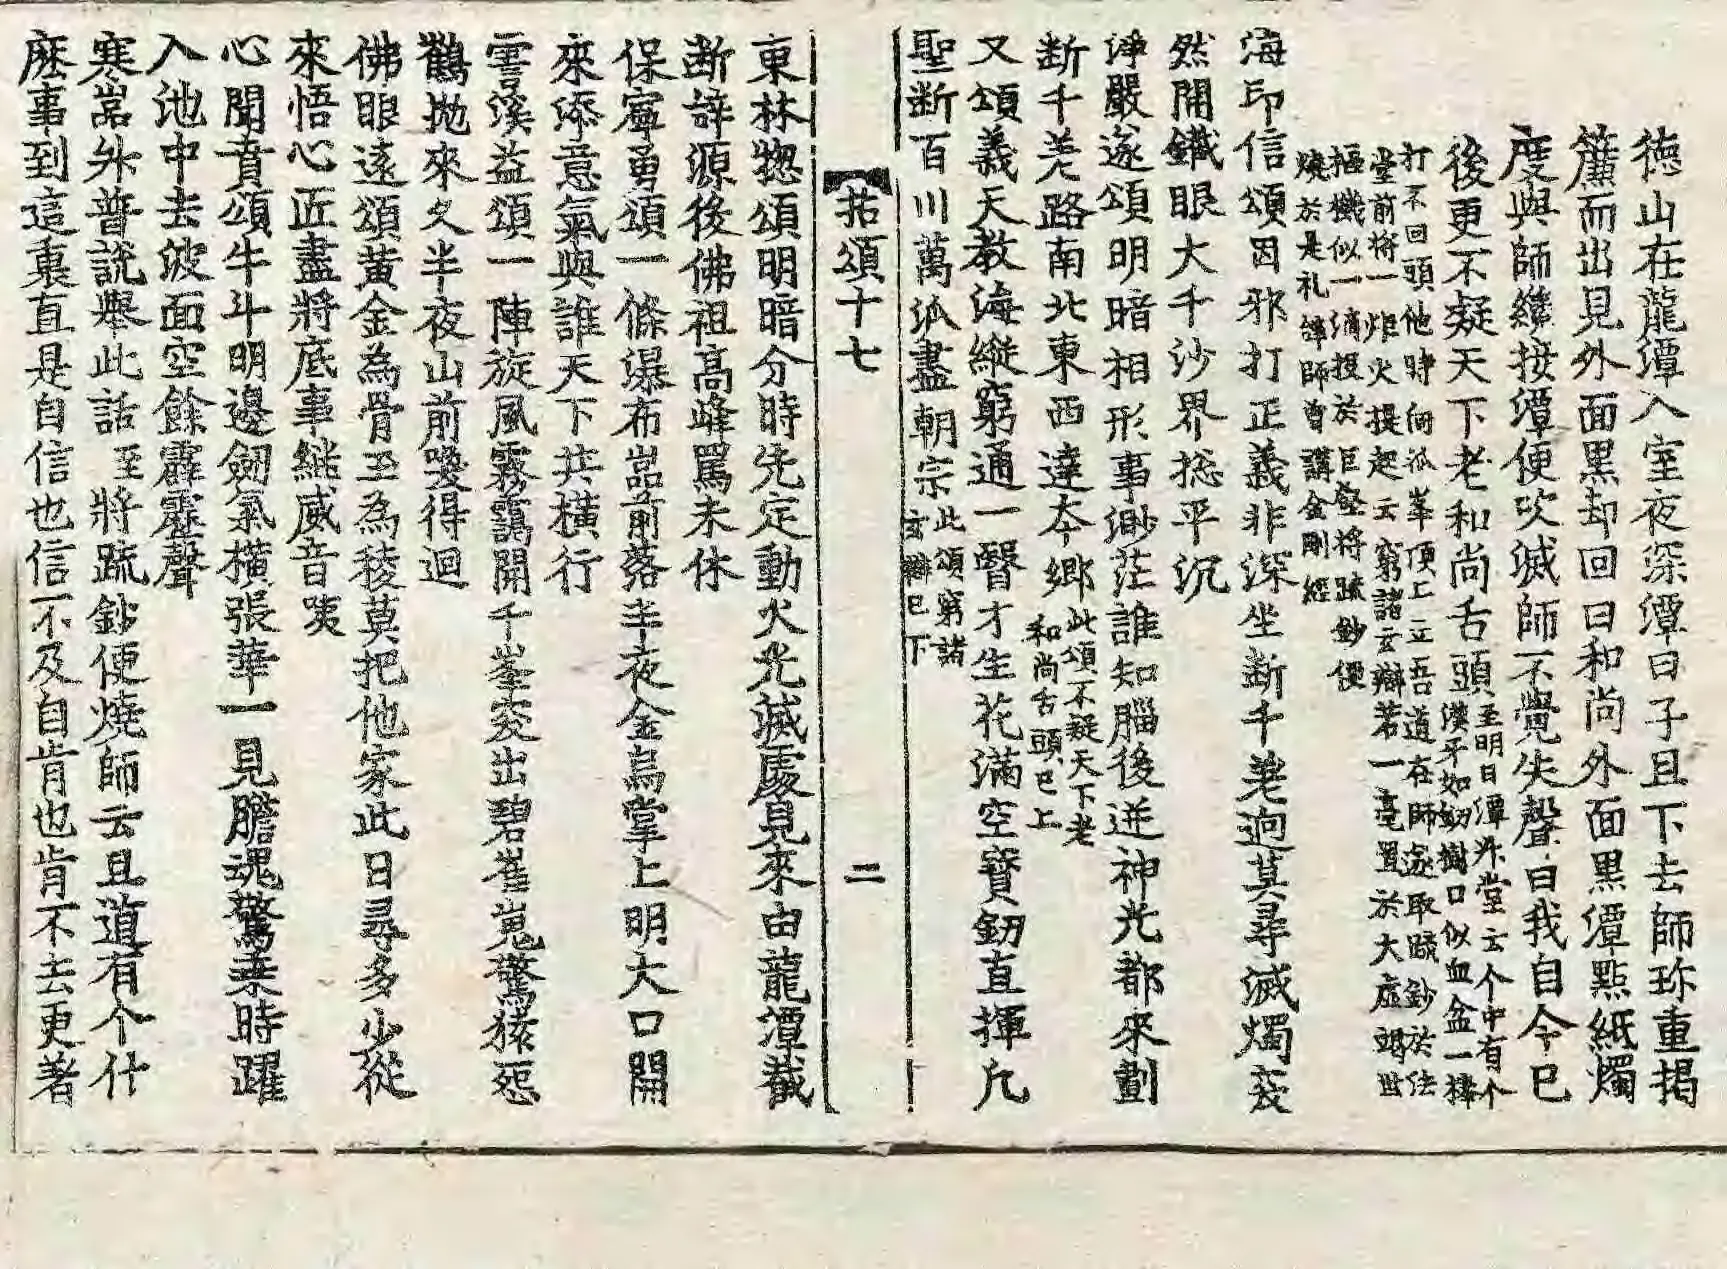 德山在龍潭入室夜深潭曰子且下去師珎重揭
簾而出見外面黑却回曰和尚外面黑潭點紙燭
度與師纔接潭便吹滅師不覺失聲曰我自今已
後更不疑天下老和尚舌頭至明日潭陞堂云个中有个
漢牙如釼樹口似血盆一棒
打不回頭他時向孤峯頂上立吾道在師遂取䟽鈔於法
堂前將一炬火提起云窮諸玄辯若一毫置於大虛竭世
樞機似一滴投於巨壑將䟽鈔便
燒於是礼辝師曾講金剛經
海印信頌因邪打正義非深坐断千差逈莫尋滅燭忽
然開鐵眼大千沙界捴平沉
淨嚴遂頌明暗相形事渺茫誰知腦後迸神光都來劃
断千差路南北東西達本郷此頌不疑天下老
和尚舌頭已上
又頌義天教海縱窮通一瞖才生花滿空寶釼直揮凡
聖断百川萬泒盡朝宗此頌窮諸
玄辯已下
拈頌十七 二
東林惣頌明暗分時先定動火光滅處見來由龍潭截
断辝源後佛祖髙峰罵未休
保寧勇頌一條瀑布嵓前落半夜金烏掌上明大口開
來添意氣與誰天下共橫行
霅溪益頌一陣旋風霧靄開千峯突出碧崔嵬驚猿怨
鶴抛來久半夜山前喚得迴
佛眼逺頌黃金為骨玉為稜莫把他家此日尋多少從
來悟心匠盡將底事繼威音
心聞賁頌牛斗明邊劒氣橫張華一見膽魂驚乗時躍
入池中去波面空餘霹靂聲
寒嵓外普說舉此話至將䟽鈔便燒師云且道有个什
麽事到這裏直是自信也信不及自肯也肯不去更著